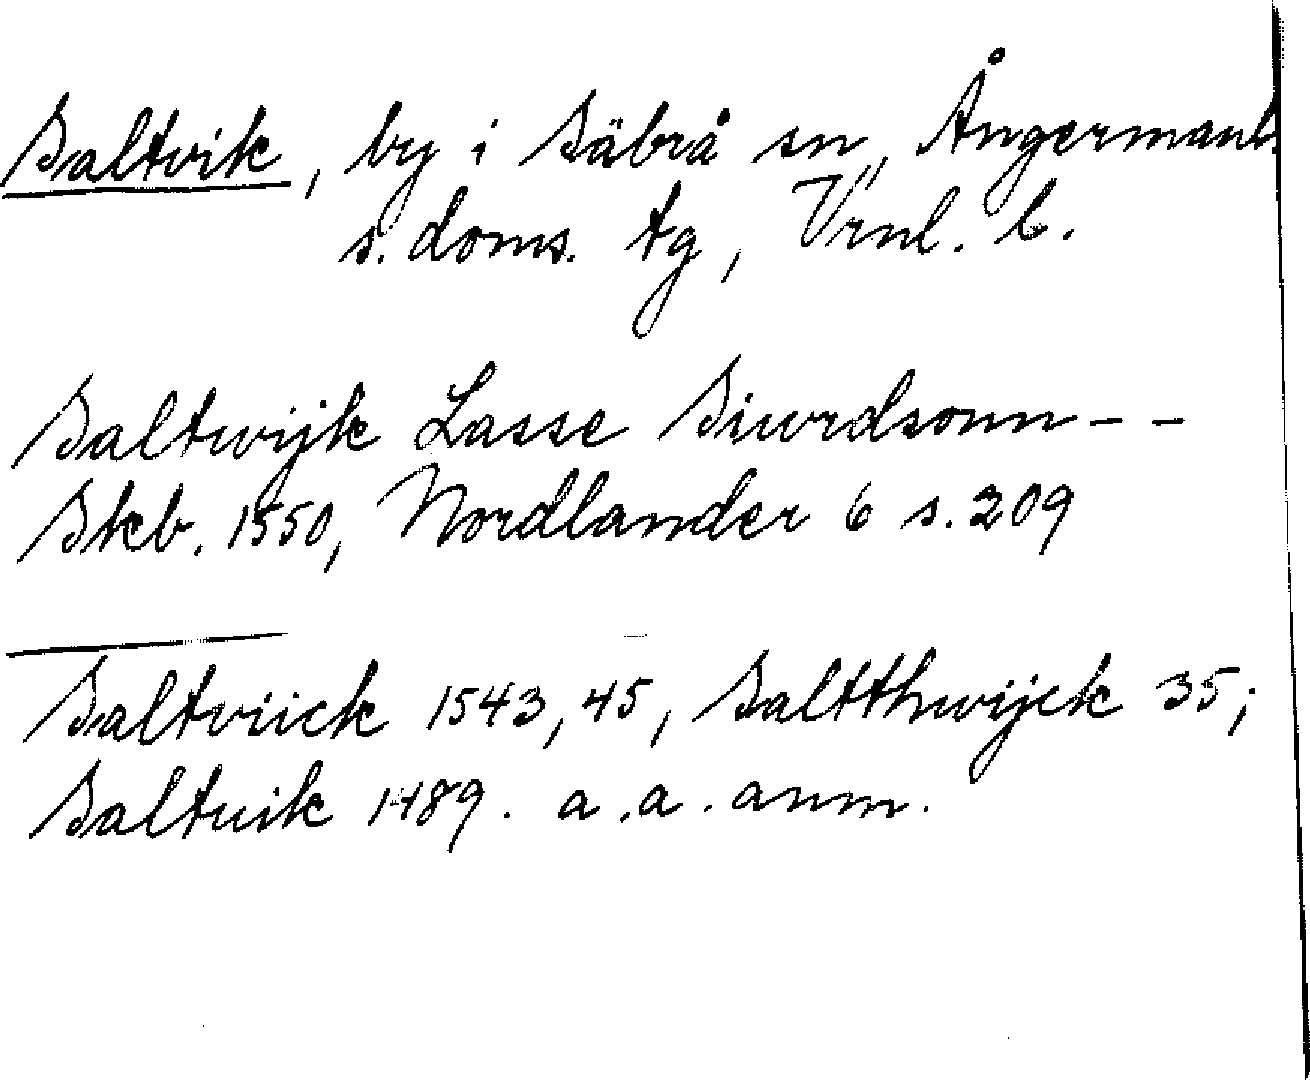 Saltvik, by i Säbrå sn, Ångermanl.
s. doms. tg, Vrnl. l.
Saltwijk Lasse Siwrdsonn - -
Skb. 1550, Nordlander 6 s. 209
Saltviick 1543, 45, Saltthwijck 35;
Saltuik 1489. a.a. anm.